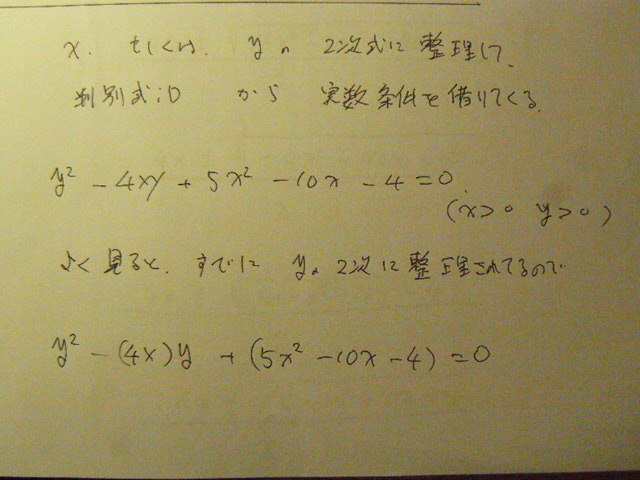 x. もしくは. yの 2次式に 整理して.
判別式:D から 実数条件を 借りてくる.
y² - 4xy + 5x² - 10x - 4 = 0.
(x>0 y>0)
よく見ると. すでに yの 2次に 整理されてるので
y² - (4x)y + (5x² - 10x - 4) = 0